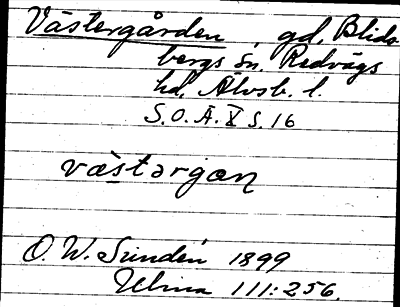 Västergården, gd, Blids-
bergs sn. Redvägs
hd. Älvsb. l.
S.O.Ä. X S. 16
væstərgan
O. W. Sundén 1899
Ulma 111:256.